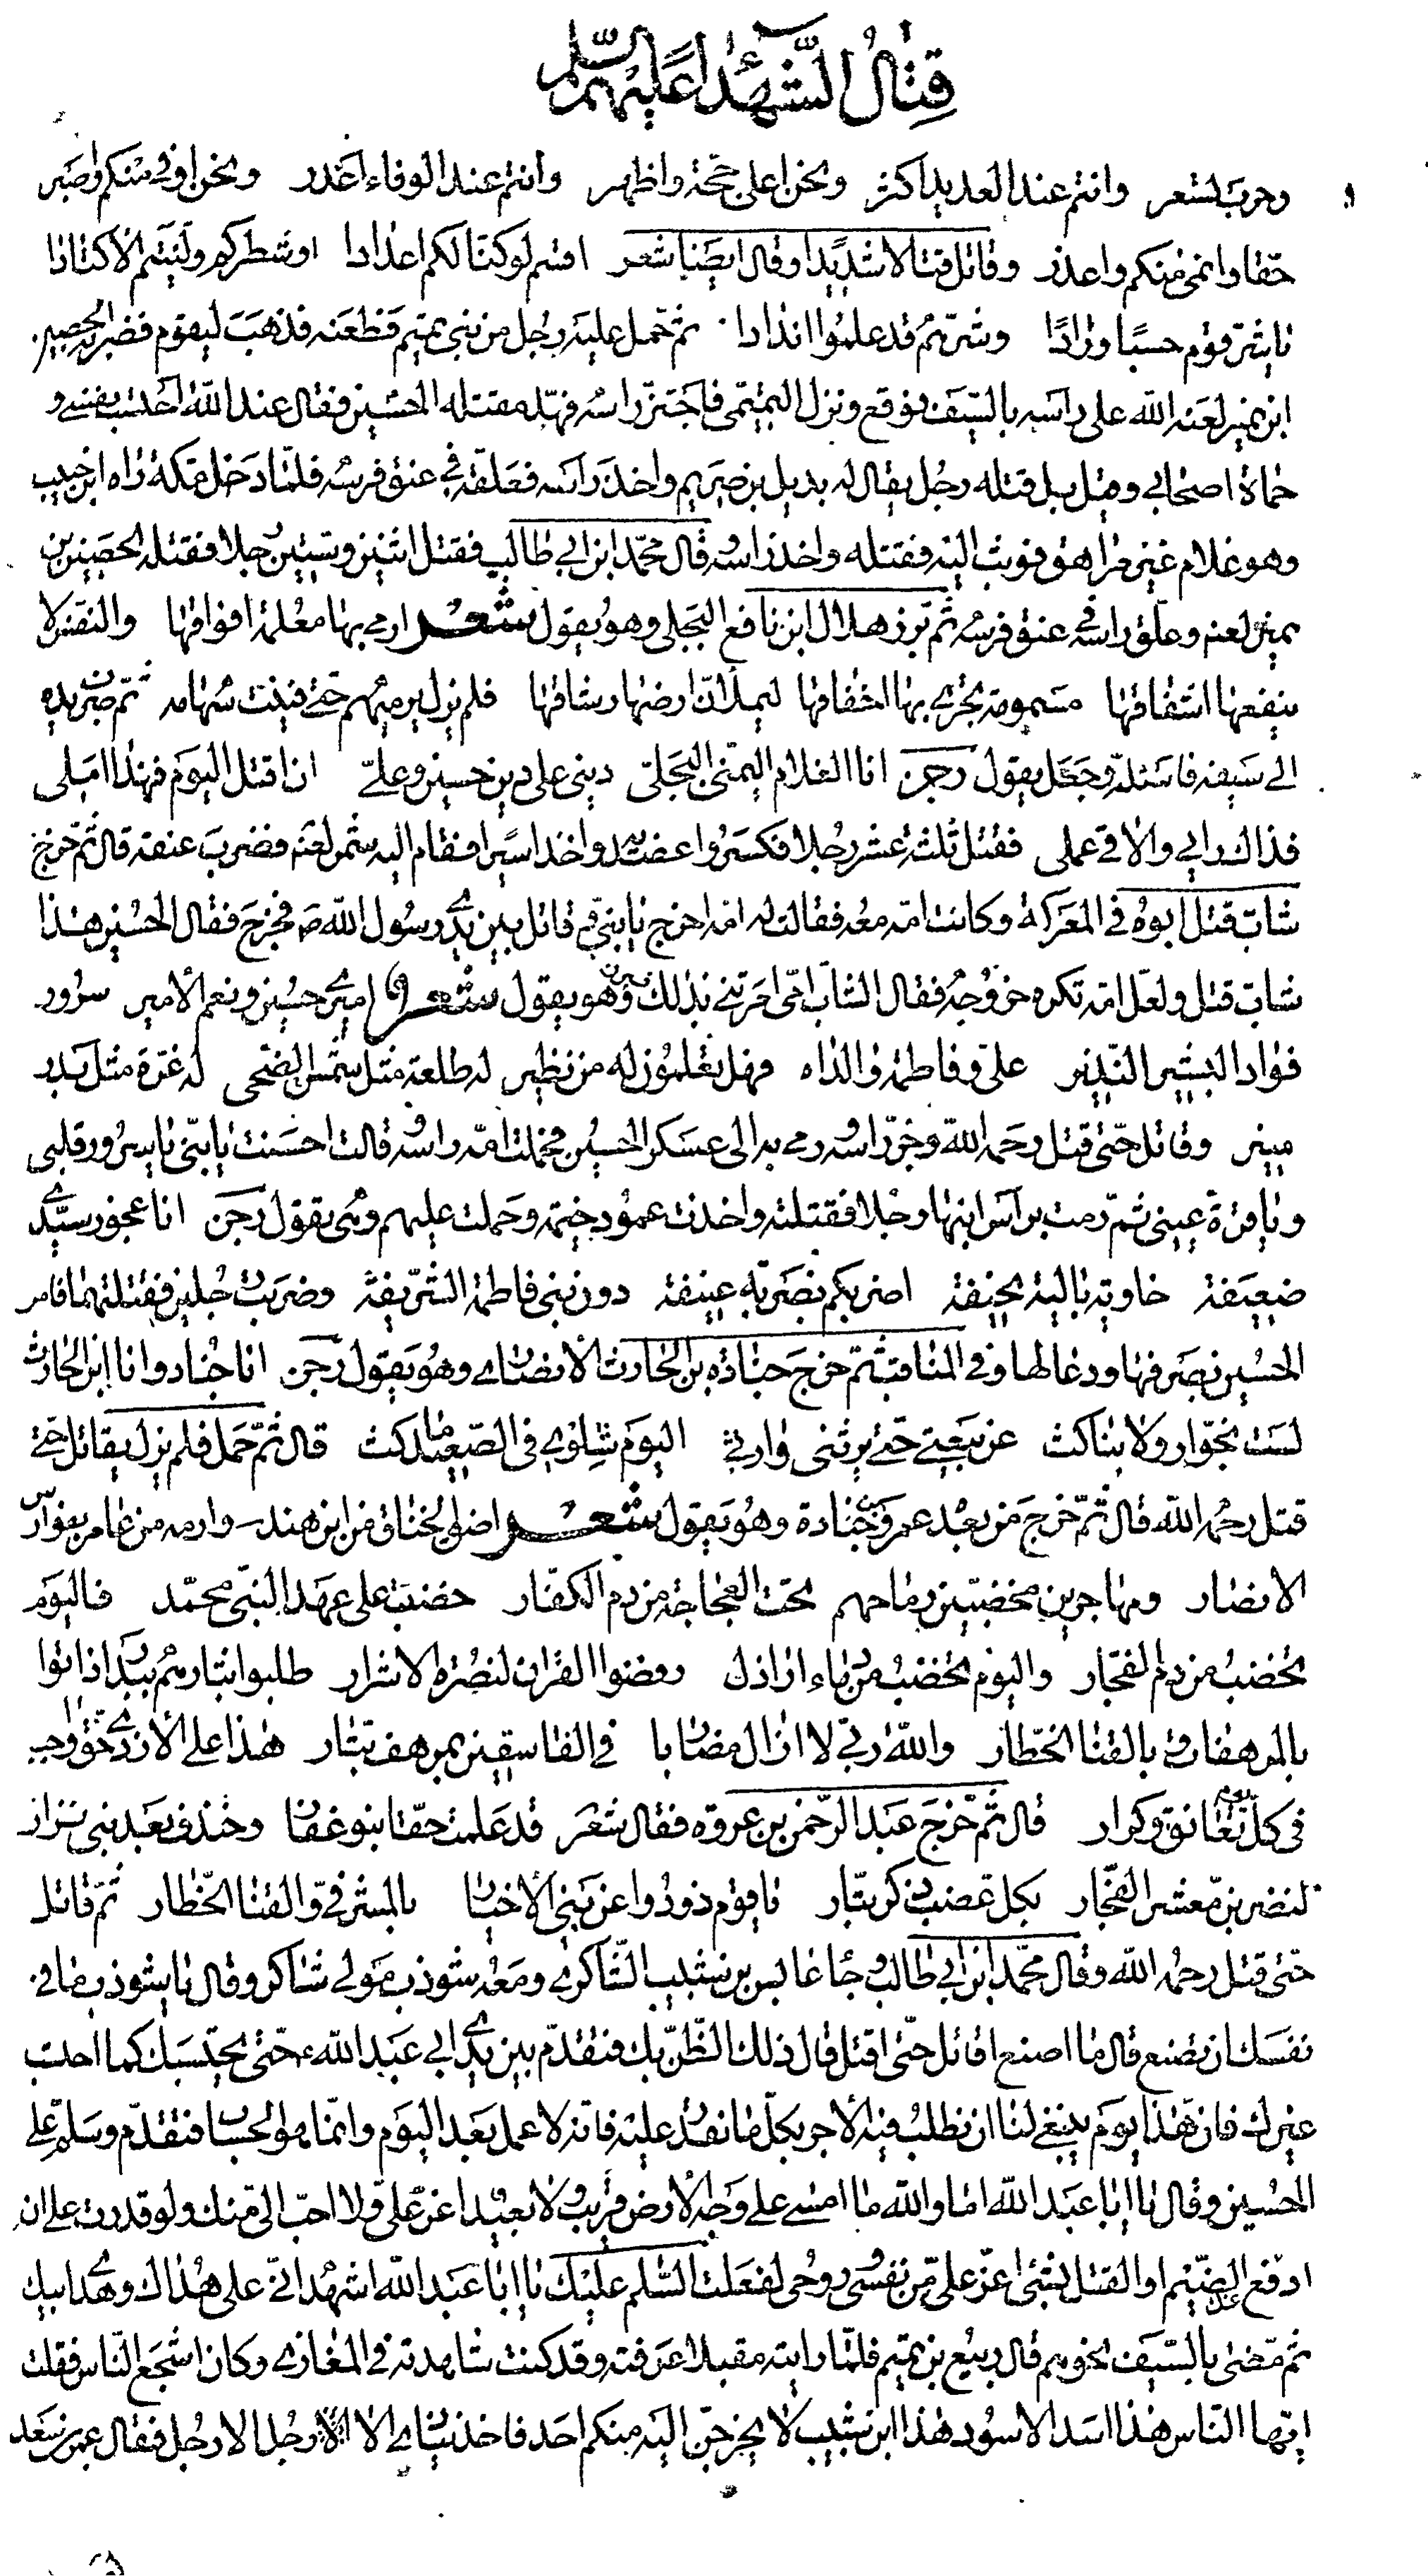 قتال الشهداء عليهم السلم
وحرب تسعر وانتم عند العديد اكثر ونحن اعلى حجة واظهر وانتم عند الوفاء اغدر ونحن اوفى منكم واصبر
حقا وانمى منكم واعذر وقاتل قتالا شديدا وقال ايضا شعر اقسم لو كنا لكم اعدادا او شطركم وليتم الاكتادا
يا شر قوم حسبا وزادا وشرهم قد علموا اندادا ثم حمل عليه رجل من بني تميم فطعنه فذهب ليقوم فضربه الحصين
ابن نمير لعنه الله على راسه بالسيف فوقع ونزل التميمي فاجتز راسه فهد مقتله الحسين فقال عند الله احتسب نفسي و
حماة اصحابي وقيل بل قتله رجل يقال له بديل بن صريم واخذ راسه فعلقه في عنق فرسه فلما دخل مكة راه ابن حبيب
وهو غلام غير مراهق فوثب اليه فقتله واخذ راسه وقال محمد ابن ابي طالب فقتل اثنين وستين رجلا فقتله الحصين بن
نمير لعنه وعلق راسه في عنق فرسه ثم برز هلال ابن نافع البجلي وهو يقول شعر ارمي بها معلمة افواقها والنفس لا
ينفعها اشفاقها مسمومة تجري بها اخفاقها ليملان ارضها رشاقها فلم يزل يرميهم حتى فنيت سهامه ثم ضرب يده
الى سيفه فاستله وجعل يقول رجز انا الغلام اليمني البجلي ديني على دين حسين وعلي ان اقتل اليوم فهذا املي
فذاك رايي والاقي عملي فقتل ثلثة عشر رجلا فكسروا عضديه واخذ اسيرا فقام اليه شمر لعنه فضرب عنقه قال ثم خرج
شاب قتل ابوه في المعركة وكانت امه معه فقالت له امه اخرج يا بني قاتل بين يدي رسول الله ص فخرج فقال الحسين هذا
شاب قتل ولعل امه تكره خروجه فقال الشاب امي امرتني بذلك فبرز وهو يقول شعر اميري حسين ونعم الامير سرور
فؤاد البشير النذير علي وفاطمة والداه فهل تعلمون له من نظير له طلعة مثل شمس الضحى له غرة مثل بدر
منير وقاتل حتى قتل رحمه الله وجز راسه ورمي به الى عسكر الحسين فحملت امه راسه وقالت احسنت يا بني يا سرور قلبي
ويا قرة عيني ثم رمت براس ابنها رجلا فقتلته واخذت عمود خيمة وحملت عليهم وهي تقول رجز انا عجوز سيدي
ضعيفة خاوية بالية نحيفة اضربكم بضربة عنيفة دون بني فاطمة الشريفة وضربت رجلين فقتلتهما فامر
الحسين بصرفها ودعا لها وفي المناقب ثم خرج جنادة بن الحارث الانصاري وهو يقول رجز انا جناد وانا ابن الحارث
لست بخوار ولا بناكث عن بيعتي حتى يرثني وارثي اليوم شلوي في الصعيد ماكث قال ثم حمل فلم يزل يقاتل حتى
قتل رحمه الله قال ثم خرج من بعده عمرو بن جنادة وهو يقول شعر اضق الخناق من ابن هند وارمه من عامر بفوارس
الانصار ومهاجرين مخضبين رماحهم تحت العجاجة من دم الكفار خضبت على عهد النبي محمد فاليوم
تخضب من دم الفجار واليوم تخضب من دماء اراذل رفضوا القران لنصرة الاشرار طلبوا بثارهم ببدر اذ اتوا
بالمرهفات وبالقنا الخطار والله ربي لا ازال مضاربا في الفاسقين بمرهف بتار هذا على الازدي حق واجب
في كل يوم تعانق وكرار قال ثم خرج عبد الرحمن بن عروة فقال شعر قد علمت حقا بنو غفار وخندف بعد بني نزار
لنضربن معشر الفجار بكل عضب ذكر بتار يا قوم ذودوا عن بني الاخيار بالمشرفي والقنا الخطار ثم قاتل
حتى قتل رحمه الله وقال محمد ابن ابي طالب وجاء عابس بن شبيب الشاكري ومعه شوذب مولى شاكر وقال يا شوذب ما في
نفسك ان تصنع قال ما اصنع اقاتل حتى اقتل قال ذلك الظن بك فتقدم بين يدي ابي عبد الله ع حتى يحتسبك كما احتسب
غيرك فان هذا يوم ينبغي لنا ان نطلب فيه الاجر بكل ما نقدر عليه فانه لا عمل بعد اليوم وانما هو الحساب فتقدم وسلم على
الحسين وقال يا ابا عبد الله اما والله ما امسى على وجه الارض قريب ولا بعيد اعز علي ولا احب الي منك ولو قدرت على ان
ادفع عنك الضيم او القتل بشيء اعز علي من نفسي وروحي لفعلت السلم عليك يا ابا عبد الله اشهد اني على هداك وهدى ابيك
ثم مضى بالسيف نحوهم قال ربيع بن تميم فلما رايته مقبلا عرفته وقد كنت شاهدته في المغازي وكان اشجع الناس فقلت
ايها الناس هذا اسد الاسود هذا ابن شبيب لا يخرجن اليه منكم احد فاخذ ينادي الا رجل الا رجل فقال عمر بن سعد